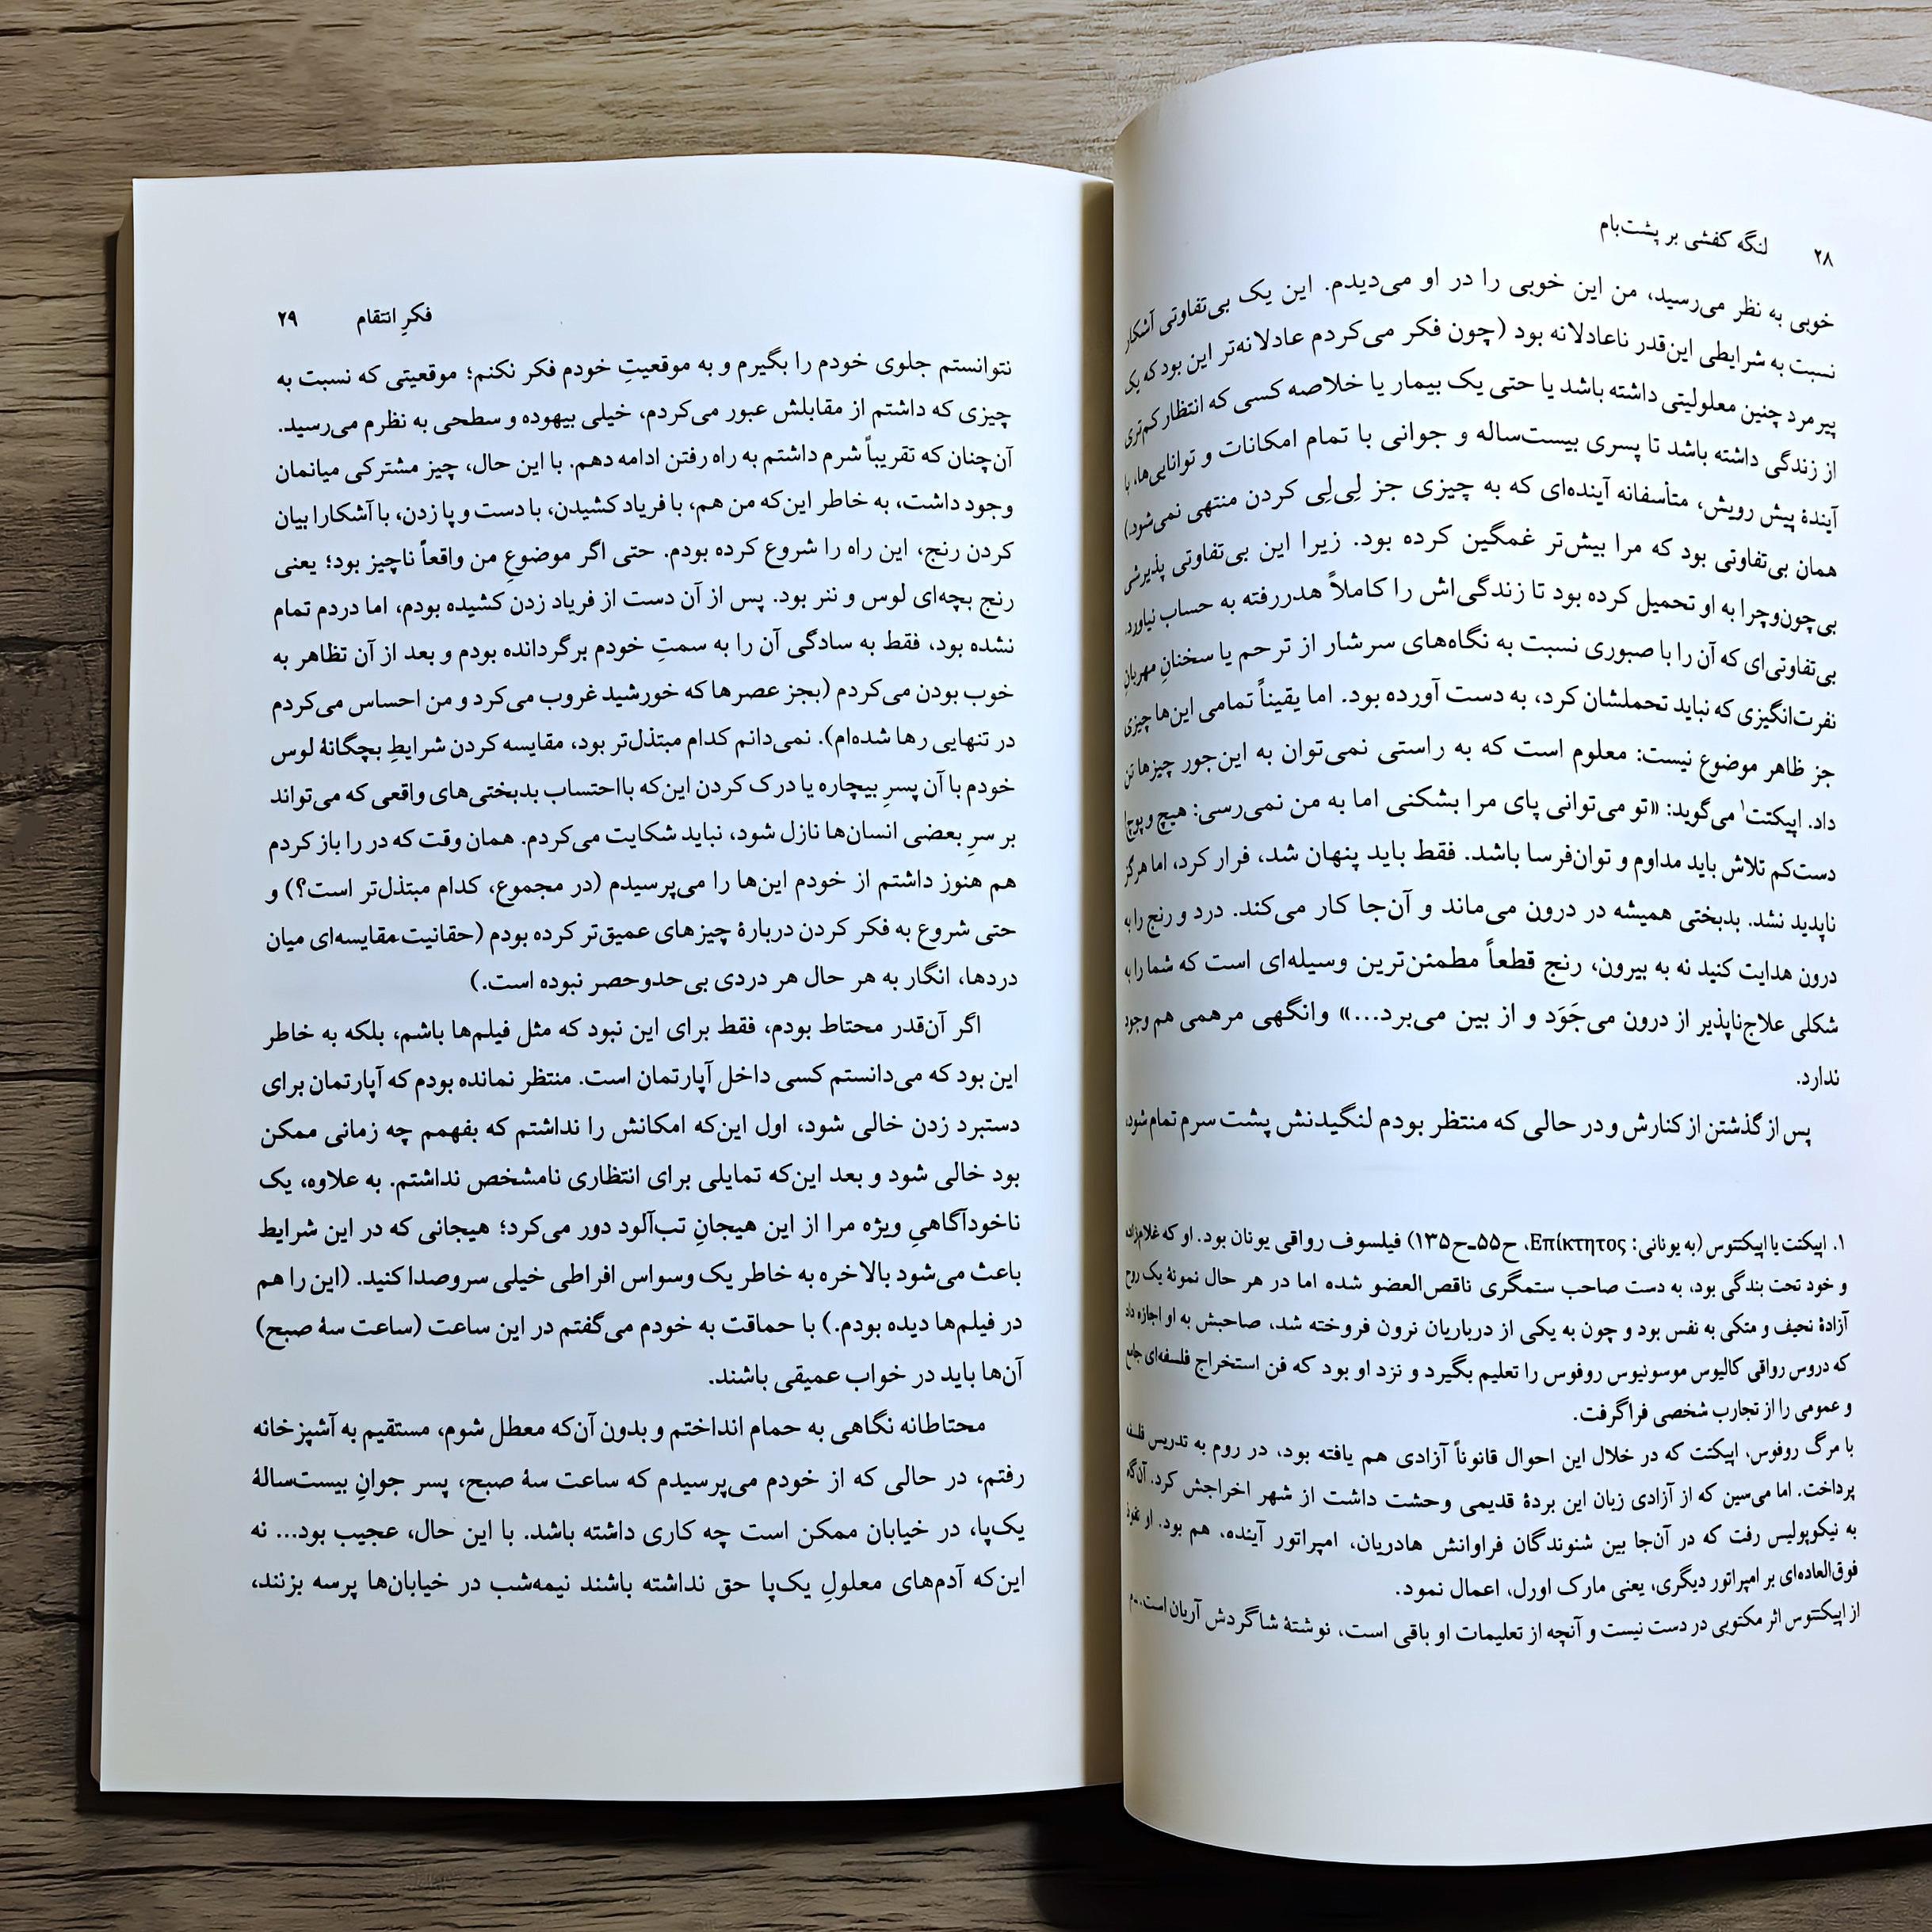 ۲۸ لنگه کفشی بر پشت‌بام
خوبی به نظر می‌رسید، من این خوبی را در او می‌دیدم. این یک بی‌تفاوتی آشکار
نسبت به شرایطی این‌قدر ناعادلانه بود (چون فکر می‌کردم عادلانه‌تر این بود که یک
پیرمرد چنین معلولیتی داشته باشد یا حتی یک بیمار یا خلاصه کسی که انتظار کم‌تری
از زندگی داشته باشد تا پسری بیست‌ساله و جوانی با تمام امکانات و توانایی‌ها، با
آیندهٔ پیش رویش، متأسفانه آینده‌ای که به چیزی جز لِی‌لِی کردن منتهی نمی‌شود.)
همان بی‌تفاوتی بود که مرا بیش‌تر غمگین کرده بود. زیرا این بی‌تفاوتی پذیرشی
بی‌چون‌وچرا به او تحمیل کرده بود تا زندگی‌اش را کاملاً هدررفته به حساب نیاورد.
بی‌تفاوتی‌ای که آن را با صبوری نسبت به نگاه‌های سرشار از ترحم یا سخنانِ مهربانِ
نفرت‌انگیزی که نباید تحملشان کرد، به دست آورده بود. اما یقیناً تمامی این‌ها چیزی
جز ظاهر موضوع نیست: معلوم است که به راستی نمی‌توان به این‌جور چیزها تن
داد. اپیکتت۱ می‌گوید: «تو می‌توانی پای مرا بشکنی اما به من نمی‌رسی: هیچ و پوچ!
دست‌کم تلاش باید مداوم و توان‌فرسا باشد. فقط باید پنهان شد، فرار کرد، اما هرگز
ناپدید نشد. بدبختی همیشه در درون می‌ماند و آن‌جا کار می‌کند. درد و رنج را به
درون هدایت کنید نه به بیرون، رنج قطعاً مطمئن‌ترین وسیله‌ای است که شما را به
شکلی علاج‌ناپذیر از درون می‌جَوَد و از بین می‌برد...» وانگهی مرهمی هم وجود
ندارد.
پس از گذشتن از کنارش و در حالی که منتظر بودم لنگیدنش پشت سرم تمام شود،
۱. اپیکتت یا اپیکتتوس (به یونانی: Επίκτητος، ح۵۵ـح۱۳۵) فیلسوف رواقی یونان بود. او که غلام‌زاده
و خود تحت بندگی بود، به دست صاحب ستمگری ناقص‌العضو شده اما در هر حال نمونهٔ یک روح
آزادهٔ نحیف و متکی به نفس بود و چون به یکی از درباریان نرون فروخته شد، صاحبش به او اجازه داد
که دروس رواقی کالیوس موسونیوس روفوس را تعلیم بگیرد و نزد او بود که فن استخراج فلسفه‌ای جامع
و عمومی را از تجارب شخصی فراگرفت.
با مرگ روفوس، اپیکتت که در خلال این احوال قانوناً آزادی هم یافته بود، در روم به تدریس فلسفه
پرداخت. اما می‌سین که از آزادی زبان این بردهٔ قدیمی وحشت داشت از شهر اخراجش کرد. آن‌گاه
به نیکوپولیس رفت که در آن‌جا بین شنوندگان فراوانش هادریان، امپراتور آینده، هم بود. او نفوذ
فوق‌العاده‌ای بر امپراتور دیگری، یعنی مارک اورل، اعمال نمود.
از اپیکتتوس اثر مکتوبی در دست نیست و آنچه از تعلیمات او باقی است، نوشتهٔ شاگردش آریان است. ـ م
فکرِ انتقام ۲۹
نتوانستم جلوی خودم را بگیرم و به موقعیتِ خودم فکر نکنم؛ موقعیتی که نسبت به
چیزی که داشتم از مقابلش عبور می‌کردم، خیلی بیهوده و سطحی به نظرم می‌رسید.
آن‌چنان که تقریباً شرم داشتم به راه رفتن ادامه دهم. با این حال، چیز مشترکی میانمان
وجود داشت، به خاطر این‌که من هم، با فریاد کشیدن، با دست و پا زدن، با آشکارا بیان
کردن رنج، این راه را شروع کرده بودم. حتی اگر موضوعِ من واقعاً ناچیز بود؛ یعنی
رنج بچه‌ای لوس و ننر بود. پس از آن دست از فریاد زدن کشیده بودم، اما دردم تمام
نشده بود، فقط به سادگی آن را به سمتِ خودم برگردانده بودم و بعد از آن تظاهر به
خوب بودن می‌کردم (بجز عصرها که خورشید غروب می‌کرد و من احساس می‌کردم
در تنهایی رها شده‌ام). نمی‌دانم کدام مبتذل‌تر بود، مقایسه کردن شرایطِ بچگانهٔ لوس
خودم با آن پسرِ بیچاره یا درک کردن این‌که بااحتساب بدبختی‌های واقعی که می‌تواند
بر سرِ بعضی انسان‌ها نازل شود، نباید شکایت می‌کردم. همان وقت که در را باز کردم
هم هنوز داشتم از خودم این‌ها را می‌پرسیدم (در مجموع، کدام مبتذل‌تر است؟) و
حتی شروع به فکر کردن دربارهٔ چیزهای عمیق‌تر کرده بودم (حقانیت مقایسه‌ای میان
دردها، انگار به هر حال هر دردی بی‌حدوحصر نبوده است.)
اگر آن‌قدر محتاط بودم، فقط برای این نبود که مثل فیلم‌ها باشم، بلکه به خاطر
این بود که می‌دانستم کسی داخل آپارتمان است. منتظر نمانده بودم که آپارتمان برای
دستبرد زدن خالی شود، اول این‌که امکانش را نداشتم که بفهمم چه زمانی ممکن
بود خالی شود و بعد این‌که تمایلی برای انتظاری نامشخص نداشتم. به علاوه، یک
ناخودآگاهیِ ویژه مرا از این هیجانِ تب‌آلود دور می‌کرد؛ هیجانی که در این شرایط
باعث می‌شود بالاخره به خاطر یک وسواس افراطی خیلی سروصدا کنید. (این را هم
در فیلم‌ها دیده بودم.) با حماقت به خودم می‌گفتم در این ساعت (ساعت سهٔ صبح)
آن‌ها باید در خواب عمیقی باشند.
محتاطانه نگاهی به حمام انداختم و بدون آن‌که معطل شوم، مستقیم به آشپزخانه
رفتم، در حالی که از خودم می‌پرسیدم که ساعت سهٔ صبح، پسر جوانِ بیست‌سالهٔ
یک‌پا، در خیابان ممکن است چه کاری داشته باشد. با این حال، عجیب بود... نه
این‌که آدم‌های معلولِ یک‌پا حق نداشته باشند نیمه‌شب در خیابان‌ها پرسه بزنند،